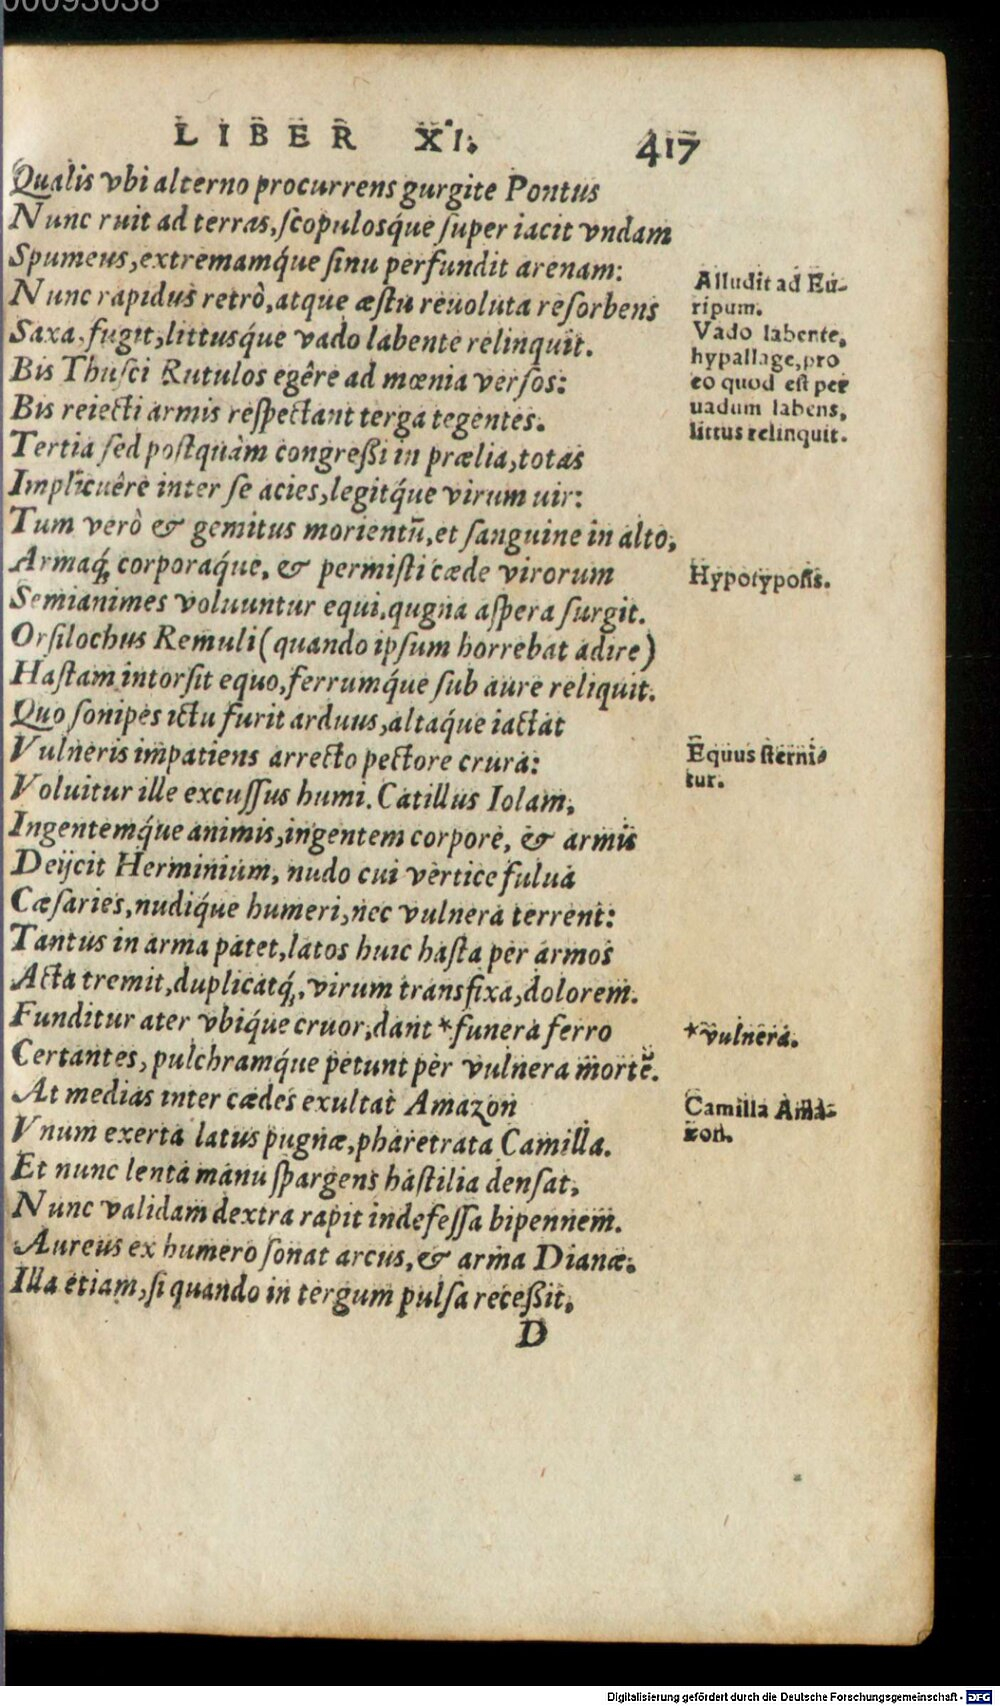 00093038
LIBER XI. 417
Qualis vbi alterno procurrens gurgite Pontus
Nunc ruit ad terras, ſcopulosq́ue ſuper iacit vndam
Spumeus, extremamq́ue ſinu perfundit arenam:
Nunc rapidus retrò, atque æſtu reuoluta reſorbens
Saxa, fugit, littusq́ue vado labente relinquit.
Bis Thuſci Rutulos egêre ad mœnia verſos:
Bis reiecti armis reſpectant terga tegentes.
Tertia ſed poſtquàm congreßi in prælia, totas
Implicuêre inter ſe acies, legitq́ue virum uir:
Tum verò & gemitus morientũ, et ſanguine in alto,
Armaq́; corporaq́ue, & permiſti cæde virorum
Semianimes voluuntur equi. qugna aſpera ſurgit.
Orſilochus Remuli (quando ipſum horrebat adire)
Haſtam intorſit equo, ferrumq́ue ſub aure reliquit.
Quo ſonipes ictu furit arduus, altaq́ue iactat
Vulneris impatiens arrecto pectore crura:
Voluitur ille excuſſus humi. Catillus Iolam,
Ingentemq́ue animis, ingentem corpore, & armis
Deijcit Herminium, nudo cui vertice fulua
Cæſaries, nudiq́ue humeri, nec vulnera terrent:
Tantus in arma patet, latos huic haſta per armos
Acta tremit, duplicatq́;, virum transfixa, dolorem.
Funditur ater vbiq́ue cruor, dant * funera ferro
Certantes, pulchramq́ue petunt per vulnera mortẽ.
At medias inter cædes exultat Amazon
Vnum exerta latus pugnæ, pharetrata Camilla.
Et nunc lenta manu ſpargens haſtilia denſat,
Nunc validam dextra rapit indefeſſa bipennem.
Aureus ex humero ſonat arcus, & arma Dianæ.
Illa etiam, ſi quando in tergum pulſa receßit,
D
Alludit ad Eu-
ripum.
Vado labente,
hypallage, pro
eo quod eſt per
uadum labens,
littus relinquit.
Hypotypoſis.
Equus ſterni-
tur.
* vulnera.
Camilla Ama-
zon.
Digitalisierung gefördert durch die Deutsche Forschungsgemeinschaft - DFG